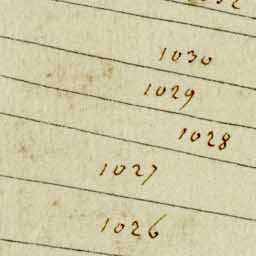 1030
1029
1028
1027
1026